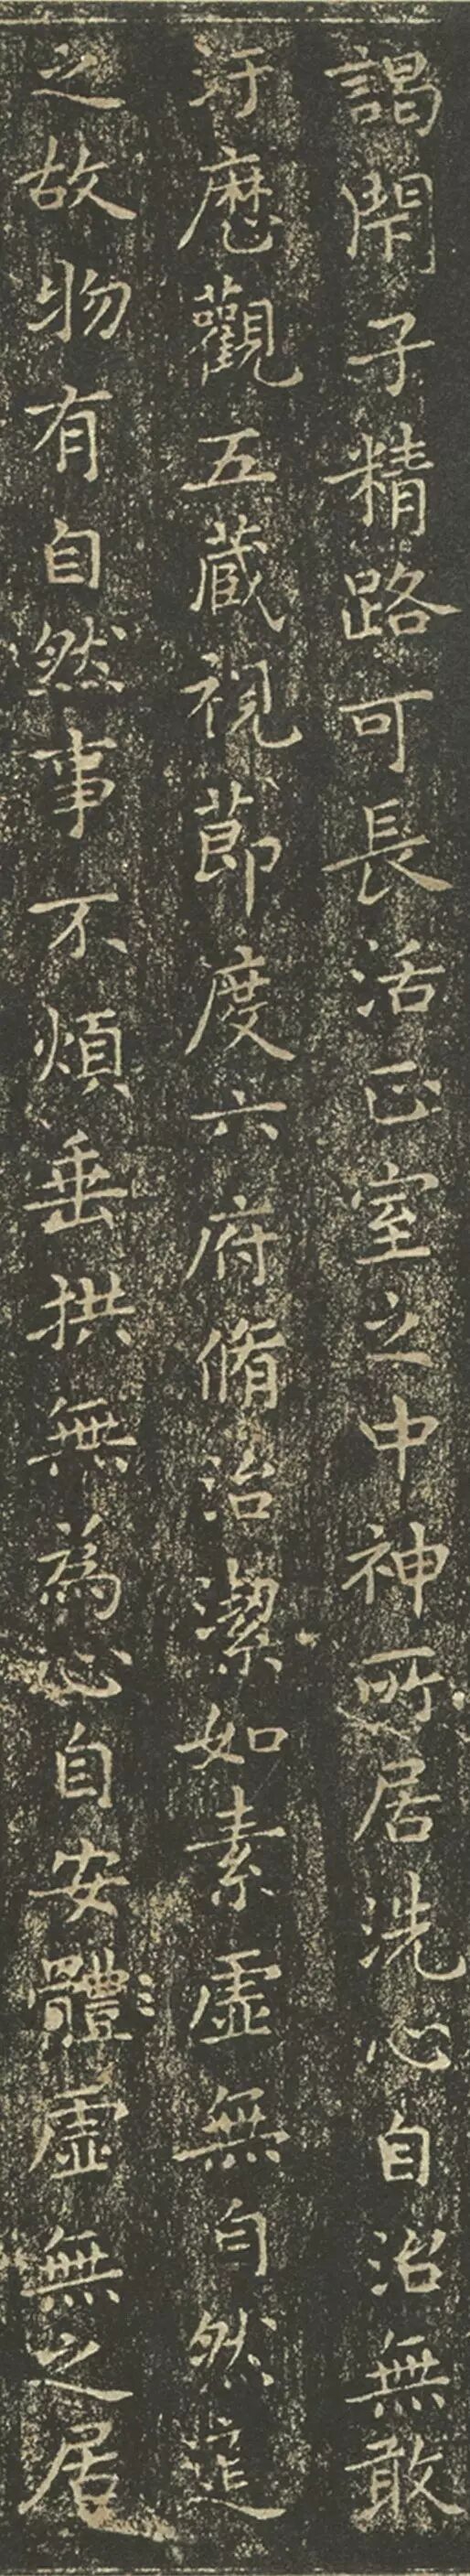 謁閉子精路可長活正室之中神所居洗心自治無敢
汙歷觀五藏視節度六府脩治潔如素虛無自然道
之故物有自然事不煩垂拱無為心自安體虛無之居